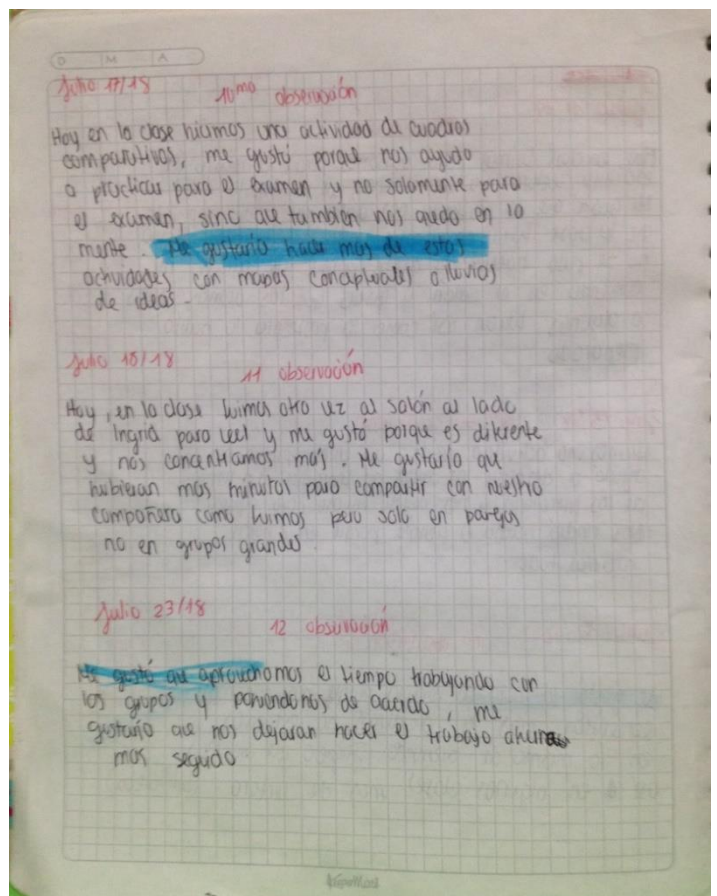 D M A
Julio 17/18
10mo observación
Hoy en la clase hicimos una actividad de cuadros
comparativos, me gustó porque nos ayudo
a practicar para el examen y no solamente para
el examen, sino que tambien nos quedo en la
mente. Me gustaría hacer mas de estas
actividades con mapas conceptuales o lluvias
de ideas.
Julio 18/18
11 observación
Hoy, en la clase fuimos otra vez al salón al lado
de Ingrid para leer y me gustó porque es diferente
y nos concentramos más. Me gustaría que
hubieran mas minutos para compartir con nuestro
compañero como fuimos pero solo en parejas
no en grupos grandes.
Julio 23/18
12 observación
Me gustó que aprovechamos el tiempo trabajando con
los grupos y poniendonos de acuerdo, me
gustaría que nos dejaran hacer el trabajo
mas seguido